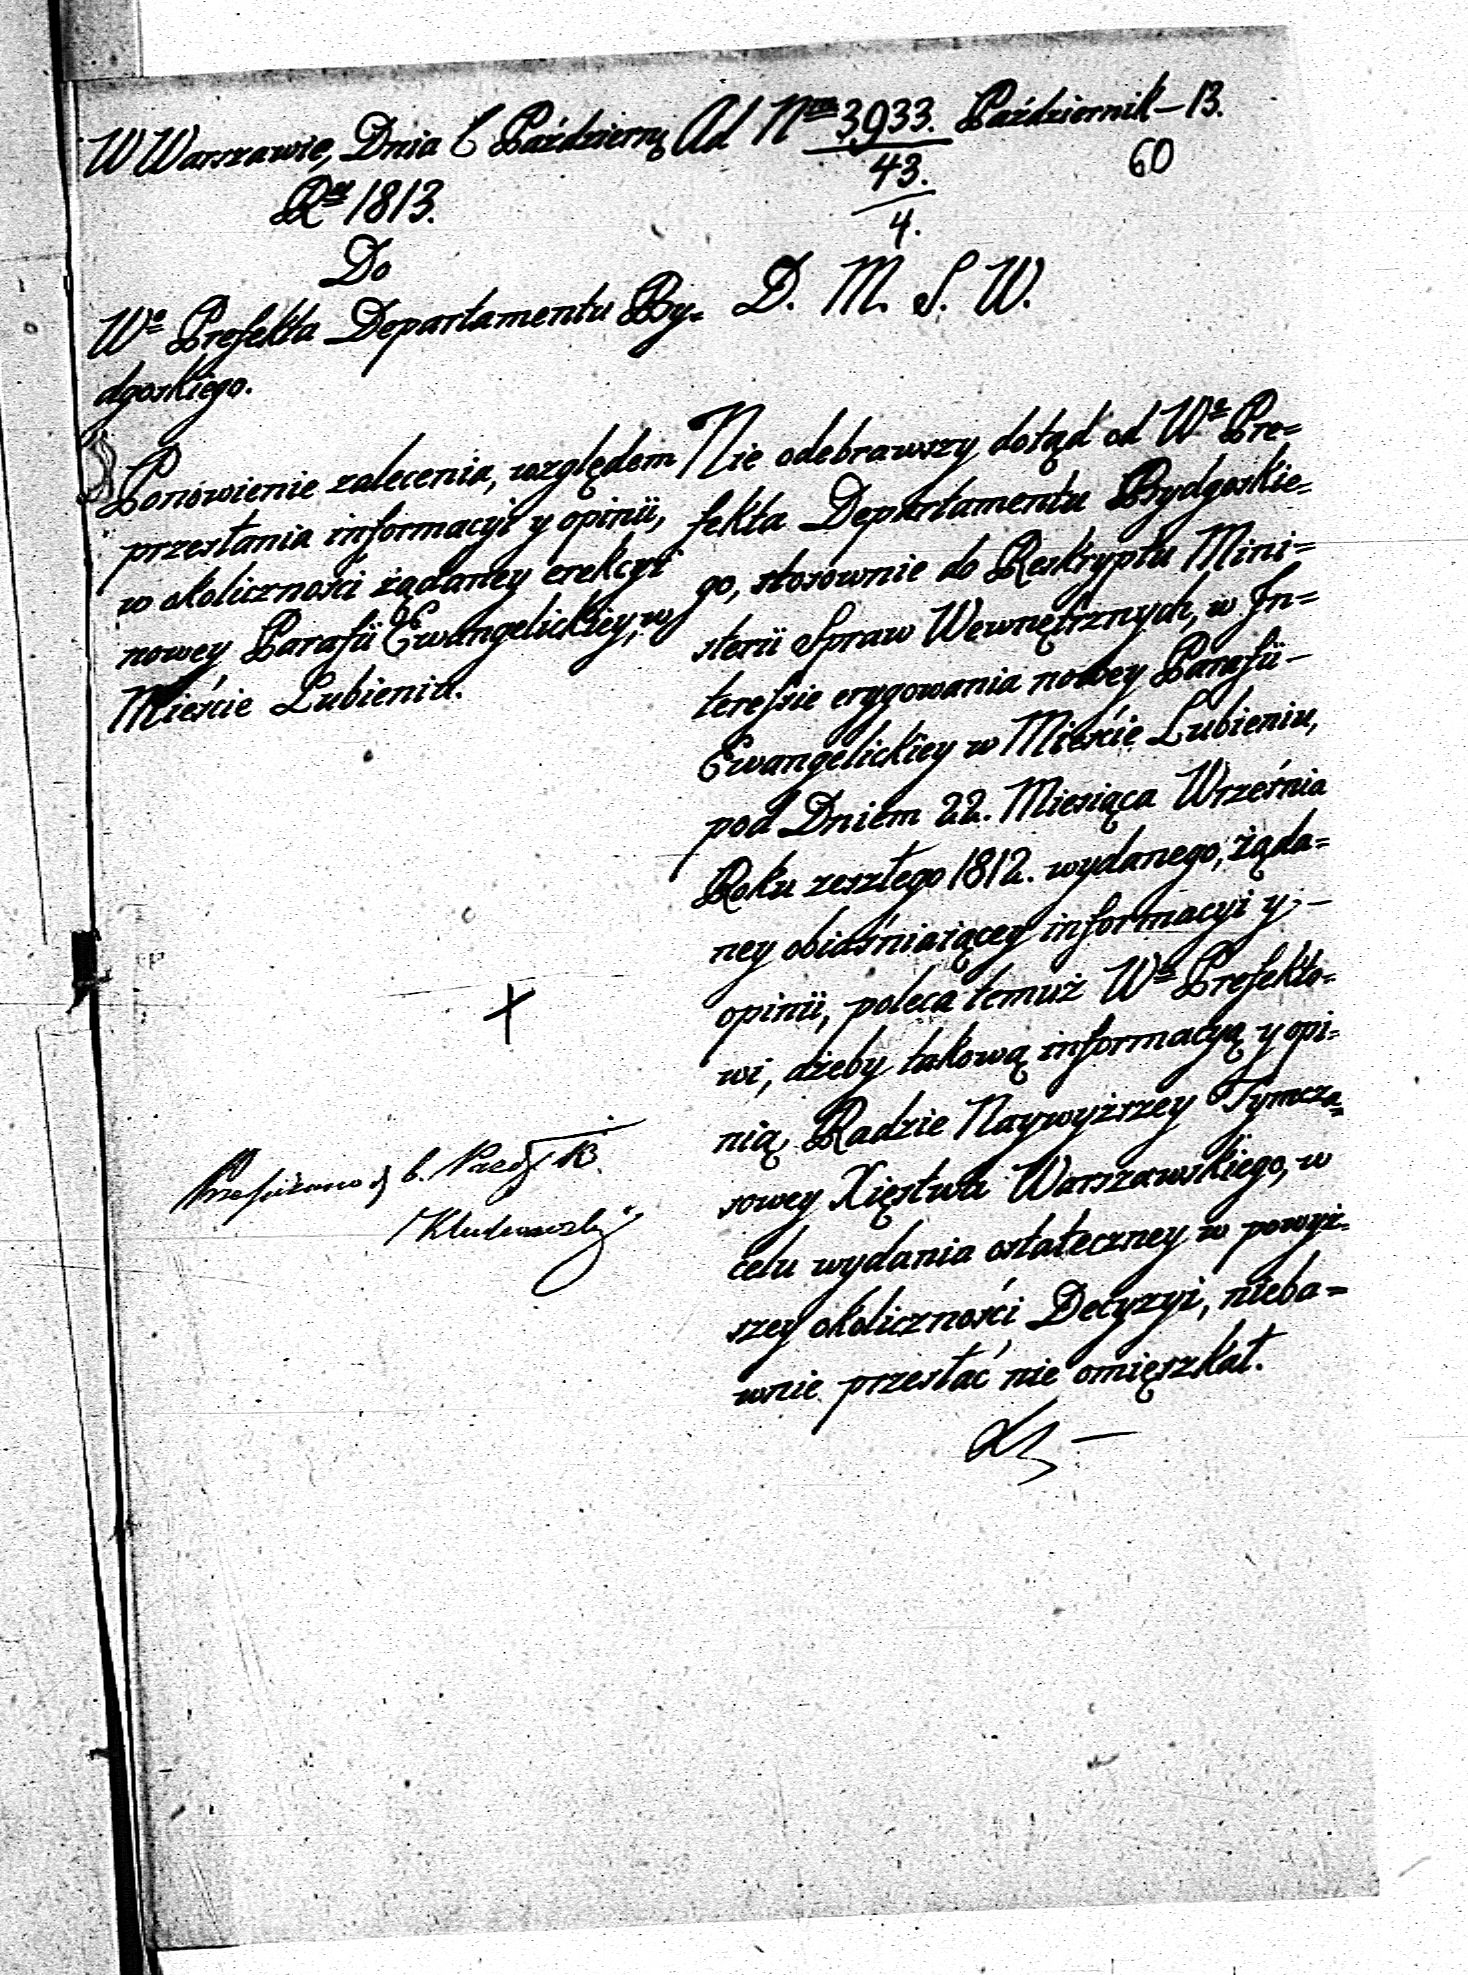 W Warszawie, Dnia 6 Październ.
Ru 1813.
Do
Wo Prefekta Departamentu By=
dgoskiego.
Ponowienie zalecenia, względem
przesłania informacyi y opinii,
w okoliczności żądaney erekcyi
nowey Parafii Ewangelickiey, w
Mieście Lubieniu.
Ad Nrum 3933. Październik – 13.
43.
4.
60
D. M. S. W.
Nie odebrawszy dotąd od Wo Pre=
fekta Departamentu Bydgoskie=
go, stosownie do Reskryptu Mini=
sterii Spraw Wewnętrznych, w In=
teressie erygowania nowey Parafii –
Ewangelickiey w Mieście Lubieniu,
pod Dniem 22. Miesiąca Września
Roku zeszłego 1812. wydanego, żąda=
ney obiaśniaiącey informacyi y, –
opinii, poleca temuż Wu Prefekto=
wi, ażeby takową informacyą y opi=
nią, Radzie Naywyższey Tymcza=
sowey Xięstwa Warszawskiego, w
celu wydania ostateczney w powyż=
szey okoliczności Decyzyi, nieba=
wnie przesłać nie omięszkał.